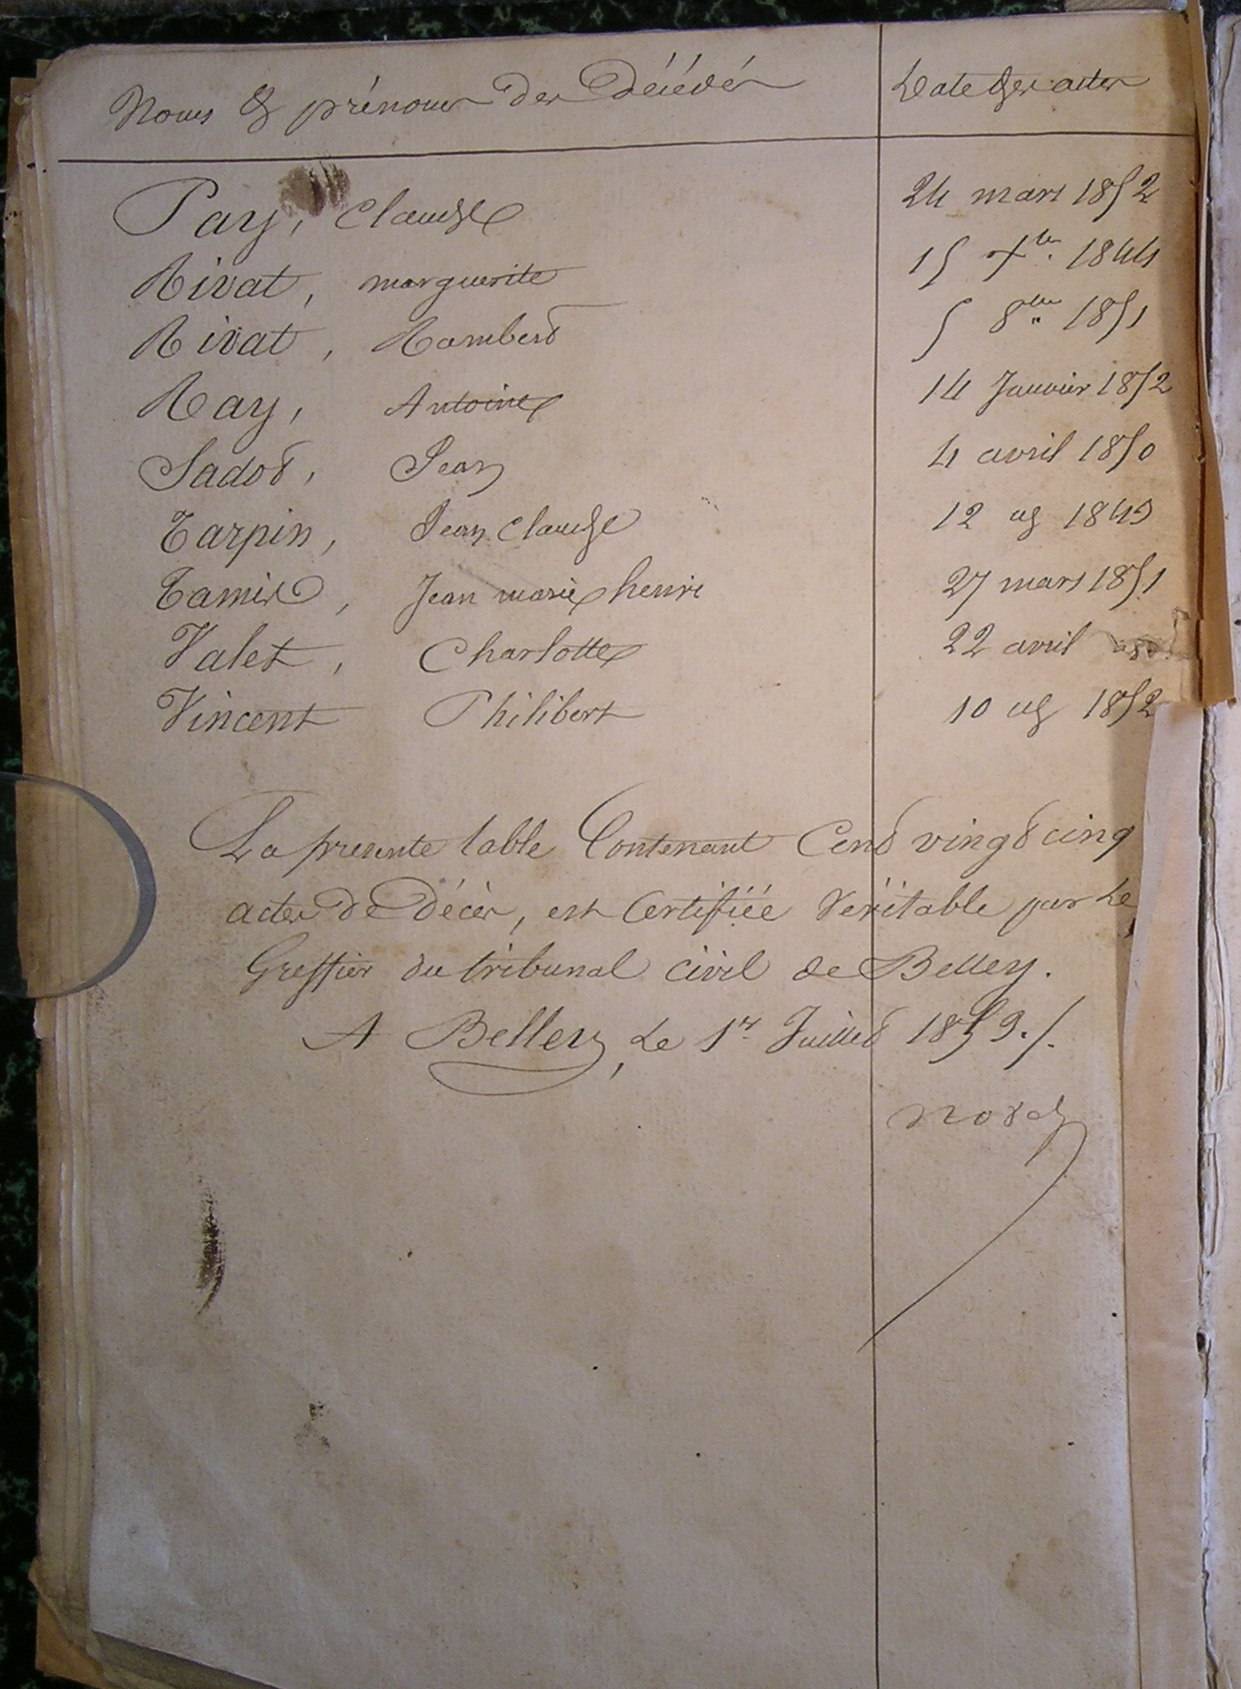 Noms & prénoms des Décédés Date des actes
Pay, Claude 24 mars 1852
Rivat, marguerite 15 7bre 1844
Rivat, Rambert 5 8bre 1851
Ray, Antoine 14 Janvier 1852
Sadot, Jean 4 avril 1850
Tarpin, Jean Claude 12 id 1849
Tamis, Jean marie henri 27 mars 1851
Valet, Charlotte 22 avril
Vincent Philibert 10 id 1852
La presente table Contenant Cent vingt cinq
actes de Décès, est Certifiée Véritable par Le
Greffier du tribunal civil de Belley.
A Belley, Le 1er Juillet 1853./.